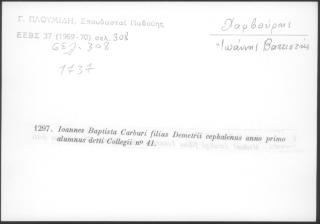 Γ. ΠΛΟΥΜΙΔΗ, Σπουδασταί Παδούης
ΕΕΒΣ 37 (1969-70) σελ. 308
σελ. 308
1737
Χαρβούρης
Ἰωάννης Βαπτιστής
1297. Ioannes Baptista Carburi filius Demetrii cephalenus anno primo
alumnus detti Collegii nº 41.